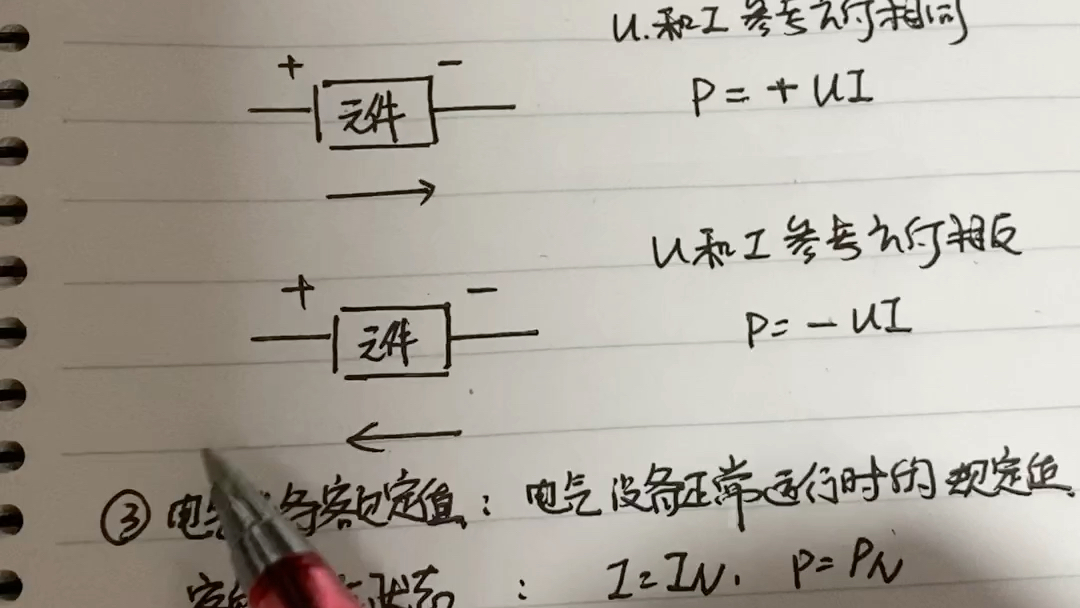 U.和I参考方向相同
+ -
元件
P=+UI
U和I参考方向相反
+ -
元件
P=-UI
③ 电气设备额定值：电气设备正常运行时的规定值.
状态：I=IN. P=PN